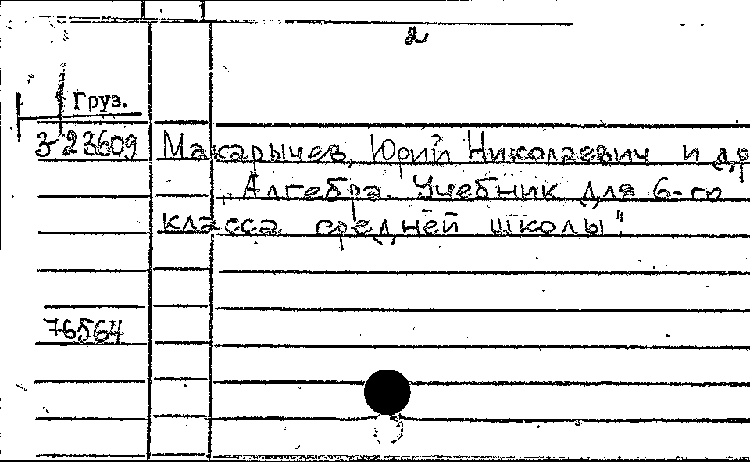 2
Груз.
3-23609 Макарычев, Юрий Николаевич и др
„Алгебра. Учебник для 6-го
класса средней школы"
76564